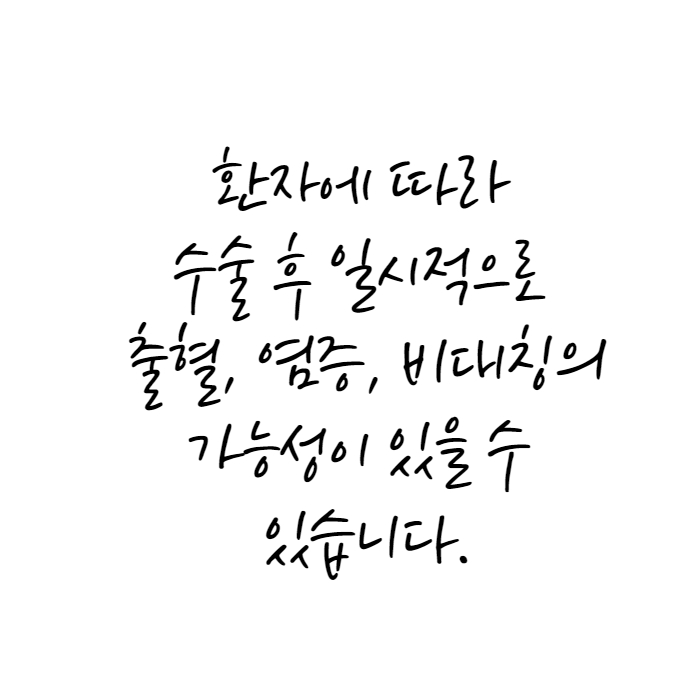 환자에 따라
수술 후 일시적으로
출혈, 염증, 비대칭의
가능성이 있을 수
있습니다.